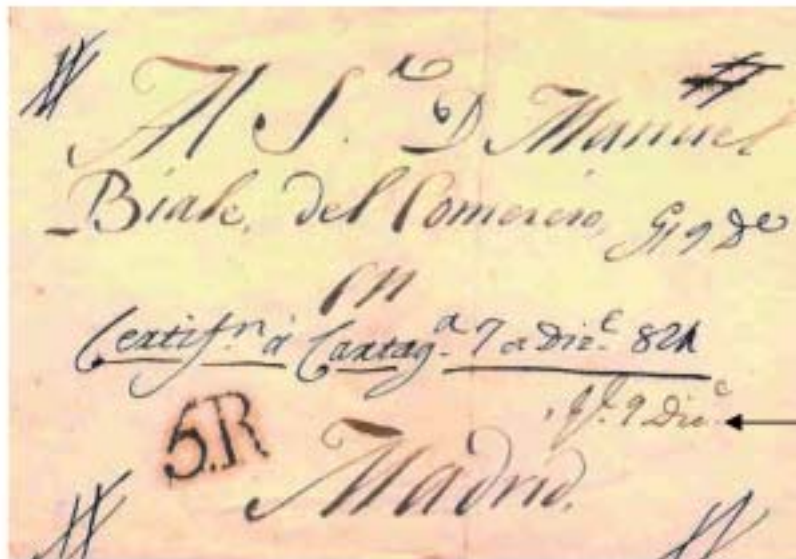 Al S.r D Manuel
Biale, del Comercio,
en
Certif.n a Cartag.a 7 a Dic.e 821
9 Dic.e
5.R
Madrid.